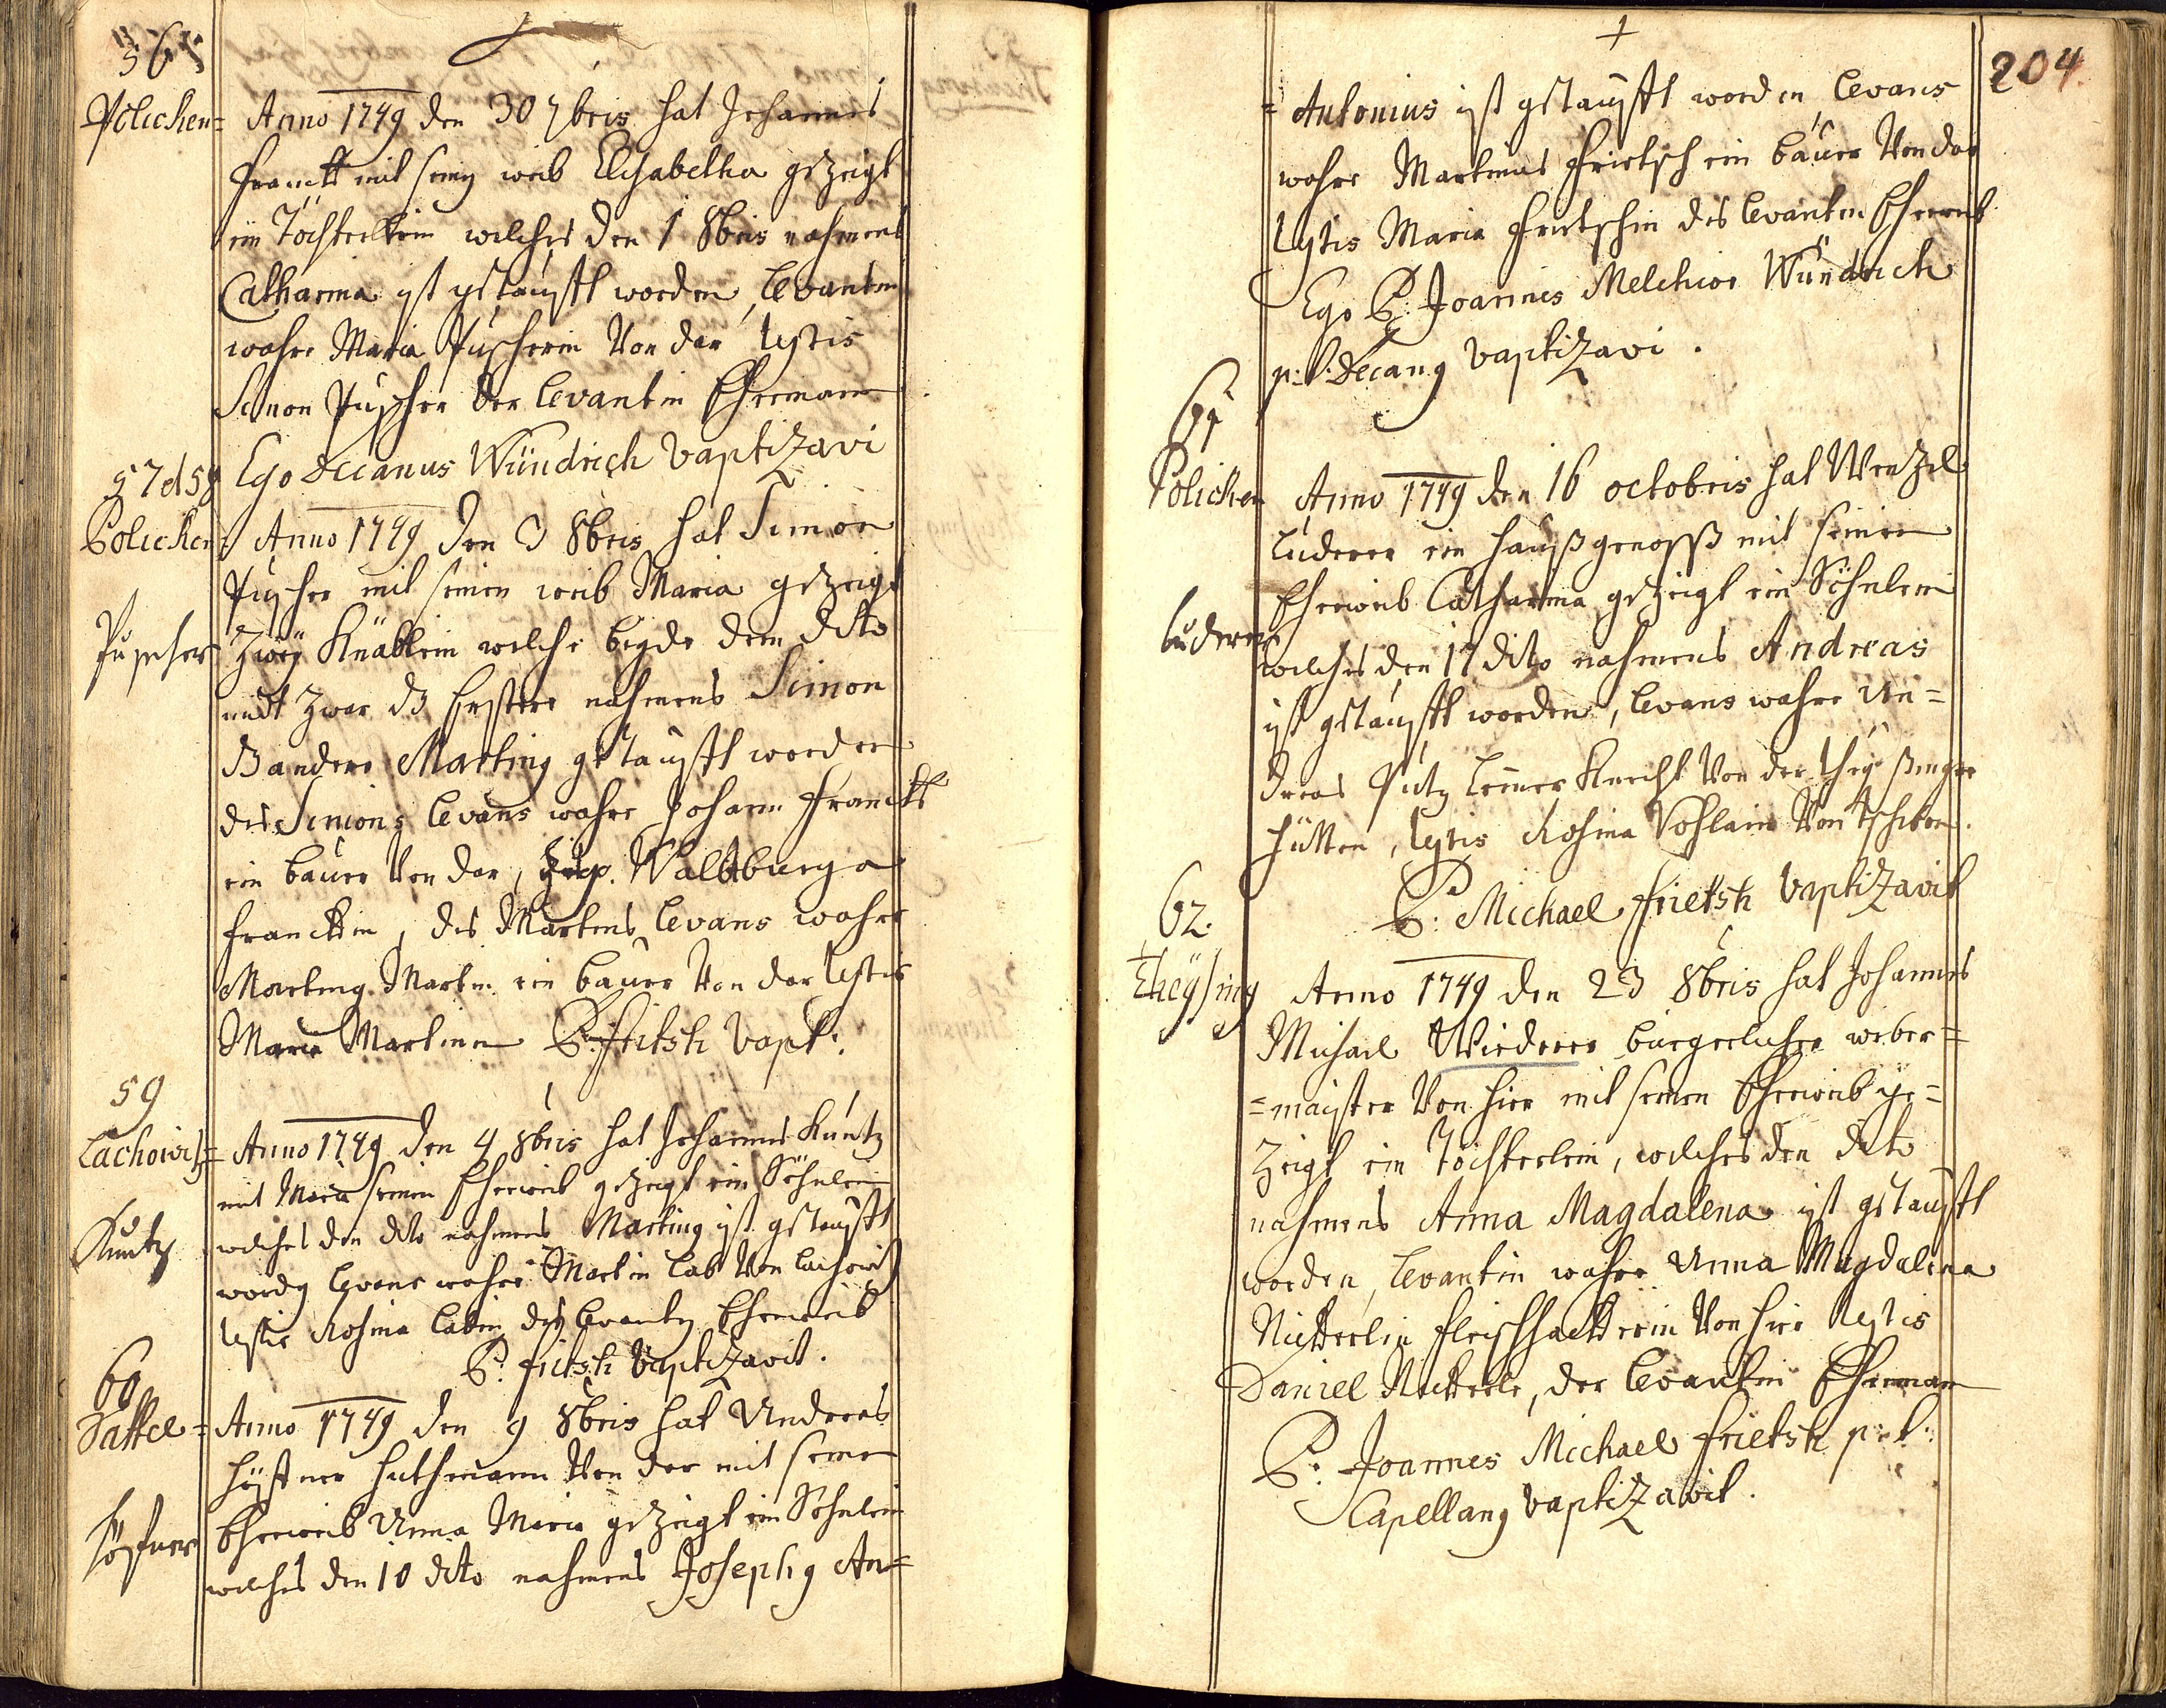 56
Policken= Anno 1749 den 30 7bris hat Johannes
Franckh mit seinen weib Elisabetha gezeigt
ein Töchterlein welches den 1 8bris nahmens
Catharina ist getaufft worden, levantin
wahre Maria Puscherin Von dar testis
Simon Puscher der levantin Ehemann
Ego Decanus Wündrich baptizavi
57 et 58
Policken Anno 1749 den 3 8bris hat Simon
Puscher mit seinen weib Maria gezeigt
Puscher zwey Knäblein welche beyde dem dito
undt zwar dz Erstere nahmens Simon
dz andere Martinus getaufft worden
des Simons levans wahre Johann Franckh
ein bauer Von dar, Walburga
Franckin, des Martins levans wahre
Martinus Martin ein bauer Von dar testis
Maria Martinin P. Fritsch bapt:
59
Lachowitz= Anno 1749 den 4 8bris hat Johannes Kuntz
mit Maria seinen Eheweib gezeigt ein Söhnlein
Kuntz welches den dito nahmens Martinus ist getaufft
worden levans wahre Martin Lab Von Lachowitz
testis Rosina Labin des levanten Eheweib
P. Fritsch baptizavit.
60
Sattel= Anno 1749 den 9 8bris hat Andreas
Höffner huthmann Von dar mit seinen
Höffner Eheweib Anna Maria gezeigt ein Söhnlein
welches den 10 dito nahmens Josephus An=
204
=Antonius ist getaufft worden, levans
wahre Martinus Frietsch ein bauer Von dar
testis Maria Frietschin des levanten Eheweib
Ego P. Joannes Melchior Wündrich
p: t: Decanus baptizavi.
61
Policken Anno 1749 den 16 octobris hat Wenzel
Luderer ein haußgenosß mit seinen
Eheweib Catharina gezeigt ein Söhnlein
Luderer welches den 17 dito nahmens Andreas
ist getaufft worden, levans wahre An=
dreas Putz Knecht Von der Theysinger
hütten, testis Rosina Von
P: Michael Frietsch baptizavit
62.
Theysing Anno 1749 den 23 8bris hat Johannes
Michael Wiederer burgerlicher weber=
=maister Von hier mit seinen Eheweib ge=
zeigt ein Töchterlein, welches den dito
nahmens Anna Magdalena ist getaufft
worden, levantin wahre Anna Magdalena
Nickerlin fleischhackerin Von hier testis
Daniel Nickerle, der levantin Ehemann
P: Joannes Michael Frietsch p: t:
Capellanus baptizavit.